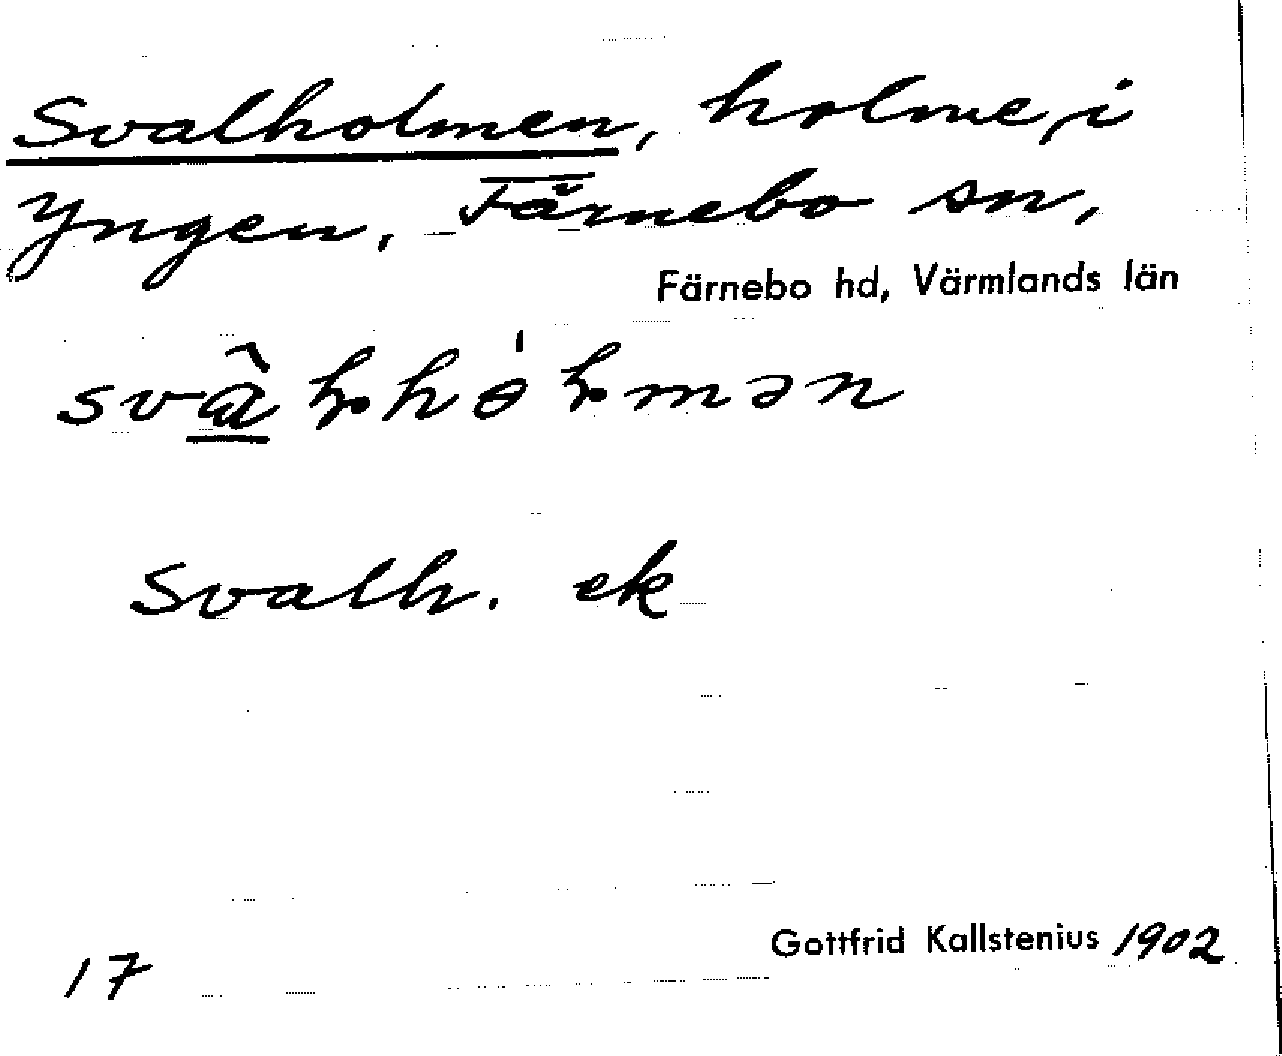 Svalholmen, holme, i
Yngen, Färnebo sn,
Färnebo hd, Värmlands län
Svalh. ek
Gottfrid Kallstenius 1902
17